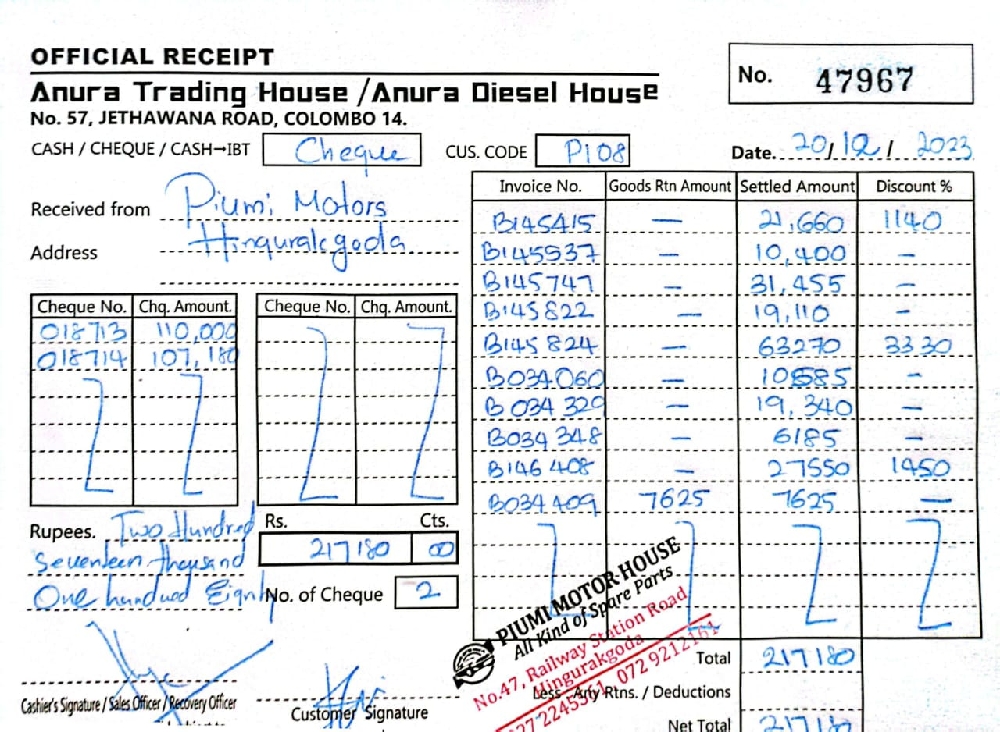 OFFICIAL RECEIPT
No. 47967
Anura Trading House / Anura Diesel House
No. 57, JETHAWANA ROAD, COLOMBO 14.
CASH / CHEQUE / CASH→IBT Cheque CUS. CODE P108 Date. 20/12/ 2023
Received from Piumi Motors
Address Hinguralcgoda
Invoice No. Goods Rtn Amount Settled Amount Discount %
B145415 — 21,660 1140
B145537 — 10,400 —
B145747 — 31,455 —
B145822 — 19,110 —
B145824 — 63270 3330
B034060 — 10585 —
B034320 — 19,340 —
B034348 — 6185 —
B146408 — 27550 1450
B034409 7625 7625 —
Cheque No. Chq. Amount. Cheque No. Chq. Amount.
018713 110,000
018714 107,180
Rupees. Two Hundred
Seventeen thousand
One hundred Eighty
Rs. Cts.
217180 00
No. of Cheque 2
PIUMI MOTOR HOUSE
All Kind of Spare Parts
No.47, Railway Station Road
Hingurakgoda
0272245561 072 9212161
Total 217180
Less - Any Rtns. / Deductions
Net Total 217180
Cashier's Signature / Sales Officer / Recovery Officer
Customer Signature